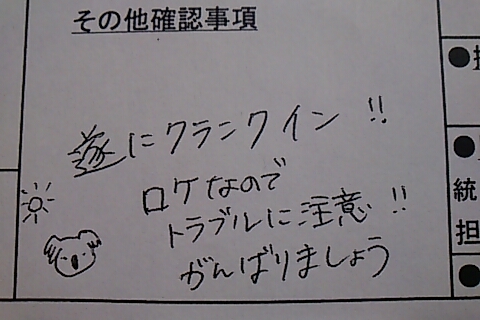 その他確認事項
遂にクランクイン!!
ロケなので
トラブルに注意!!
がんばりましょう
統
担